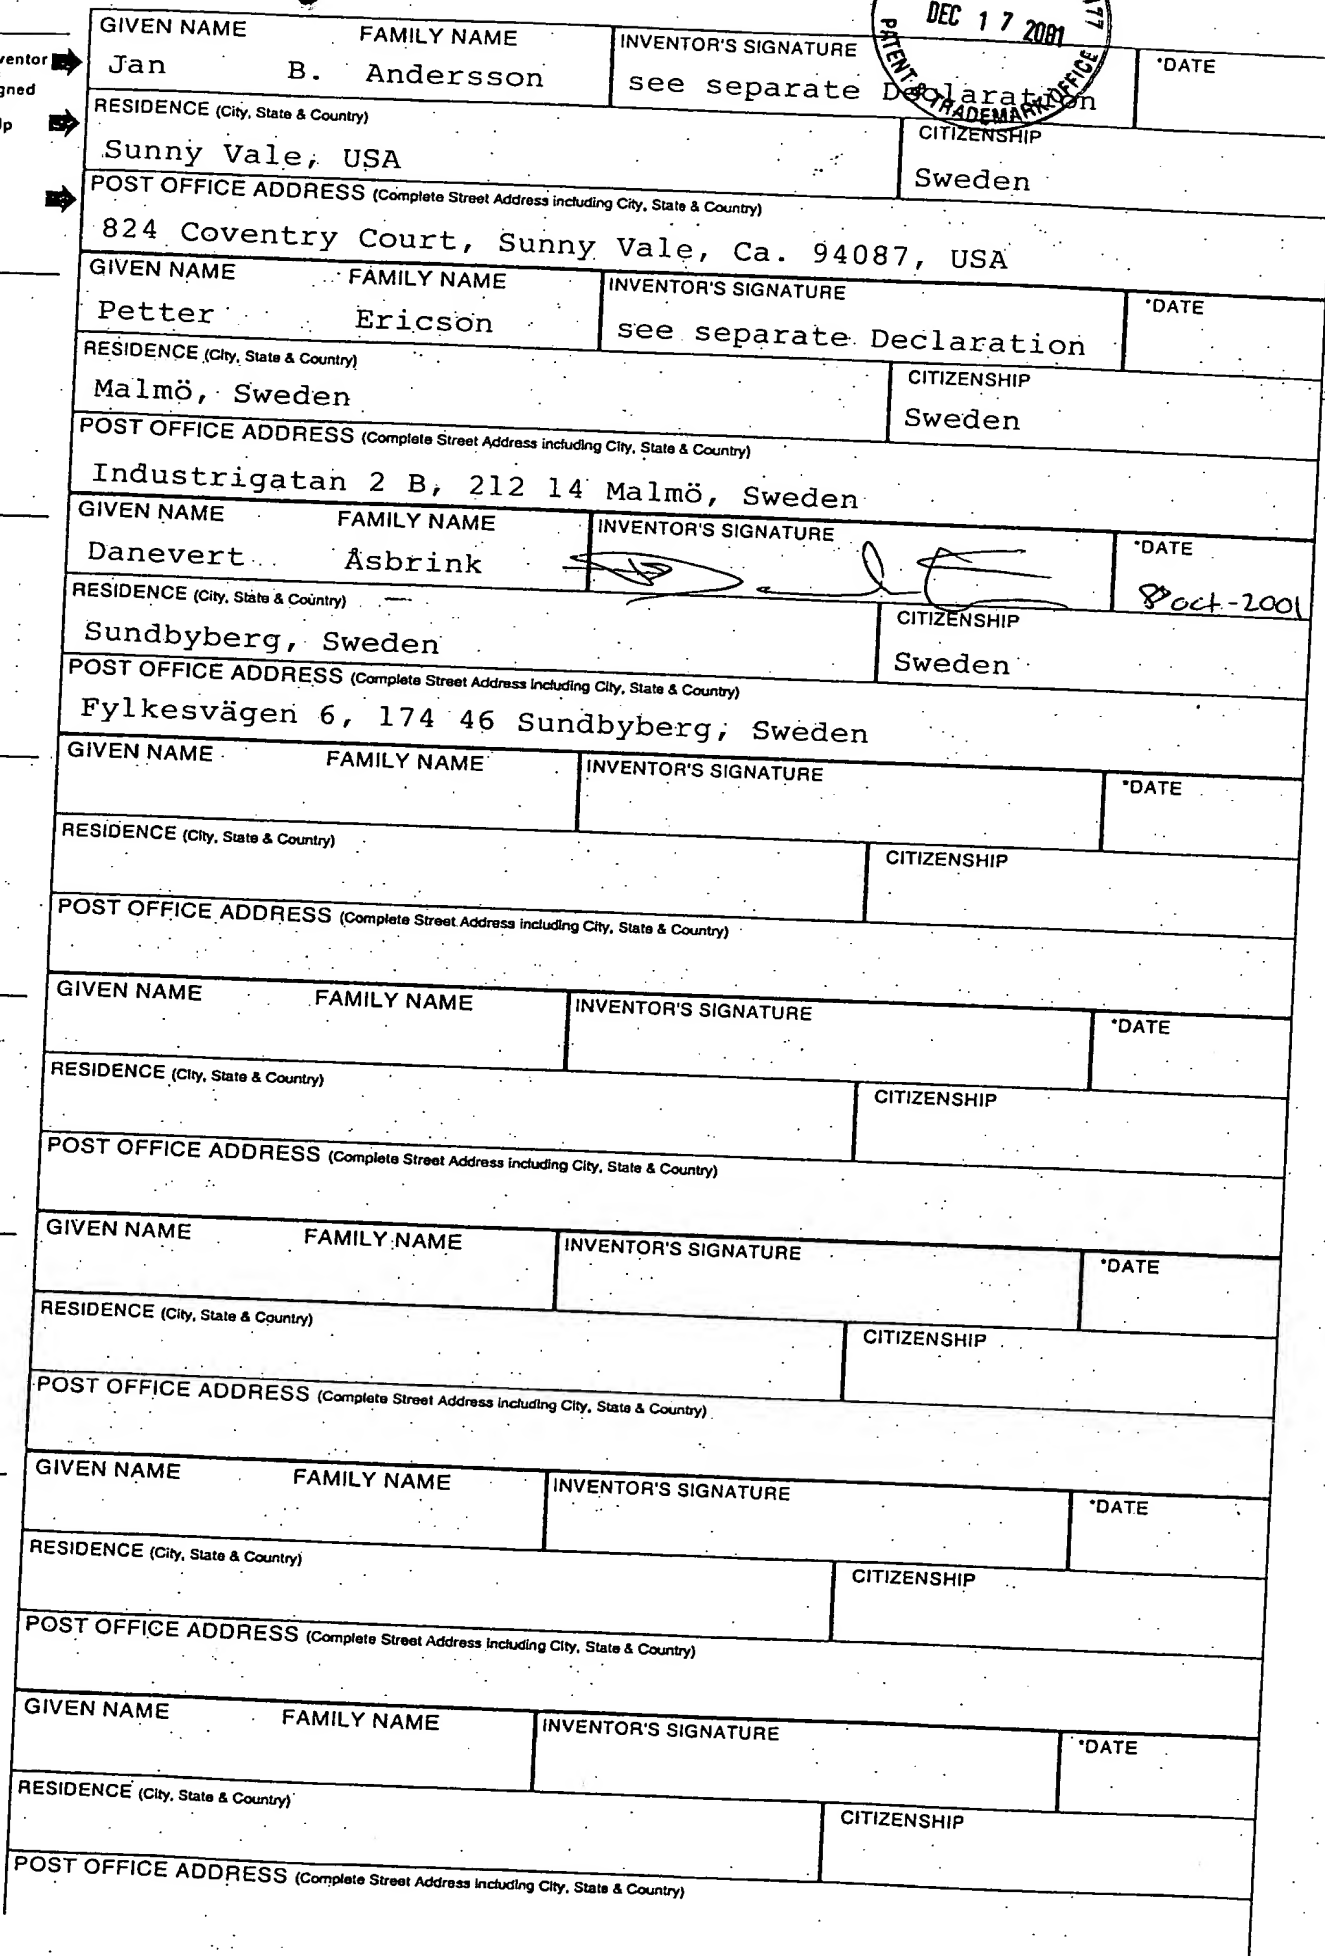 DEC 17 2001
PATENT & TRADEMARK OFFICE
ventor
gned
GIVEN NAME FAMILY NAME INVENTOR'S SIGNATURE *DATE
Jan B. Andersson see separate Declaration
RESIDENCE (City, State & Country) CITIZENSHIP
Sunny Vale, USA Sweden
POST OFFICE ADDRESS (Complete Street Address including City, State & Country)
824 Coventry Court, Sunny Vale, Ca. 94087, USA
GIVEN NAME FAMILY NAME INVENTOR'S SIGNATURE *DATE
Petter Ericson see separate Declaration
RESIDENCE (City, State & Country) CITIZENSHIP
Malmö, Sweden Sweden
POST OFFICE ADDRESS (Complete Street Address including City, State & Country)
Industrigatan 2 B, 212 14 Malmö, Sweden
GIVEN NAME FAMILY NAME INVENTOR'S SIGNATURE *DATE
Danevert Åsbrink 8 oct-2001
RESIDENCE (City, State & Country) CITIZENSHIP
Sundbyberg, Sweden Sweden
POST OFFICE ADDRESS (Complete Street Address including City, State & Country)
Fylkesvägen 6, 174 46 Sundbyberg, Sweden
GIVEN NAME FAMILY NAME INVENTOR'S SIGNATURE *DATE
RESIDENCE (City, State & Country) CITIZENSHIP
POST OFFICE ADDRESS (Complete Street Address including City, State & Country)
GIVEN NAME FAMILY NAME INVENTOR'S SIGNATURE *DATE
RESIDENCE (City, State & Country) CITIZENSHIP
POST OFFICE ADDRESS (Complete Street Address including City, State & Country)
GIVEN NAME FAMILY NAME INVENTOR'S SIGNATURE *DATE
RESIDENCE (City, State & Country) CITIZENSHIP
POST OFFICE ADDRESS (Complete Street Address including City, State & Country)
GIVEN NAME FAMILY NAME INVENTOR'S SIGNATURE *DATE
RESIDENCE (City, State & Country) CITIZENSHIP
POST OFFICE ADDRESS (Complete Street Address including City, State & Country)
GIVEN NAME FAMILY NAME INVENTOR'S SIGNATURE *DATE
RESIDENCE (City, State & Country) CITIZENSHIP
POST OFFICE ADDRESS (Complete Street Address including City, State & Country)